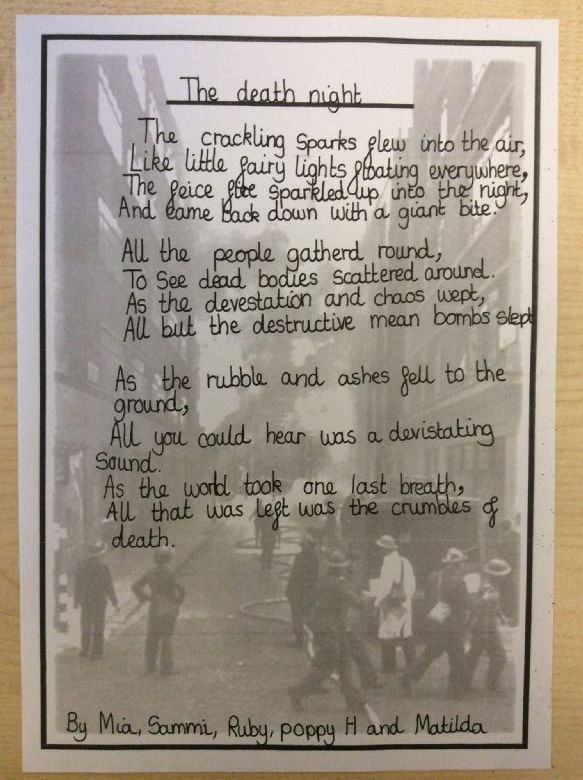 The death night
The crackling sparks flew into the air,
Like little fairy lights floating everywhere,
The feice fire sparkled up into the night,
And came back down with a giant bite.
All the people gatherd round,
To see dead bodies scattered around.
As the devestation and chaos wept,
All but the destructive mean bombs slept
As the rubble and ashes fell to the
ground,
All you could hear was a devistating
Sound.
As the world took one last breath,
All that was left was the crumbles of
death.
By Mia, Sammi, Ruby, poppy H and Matilda